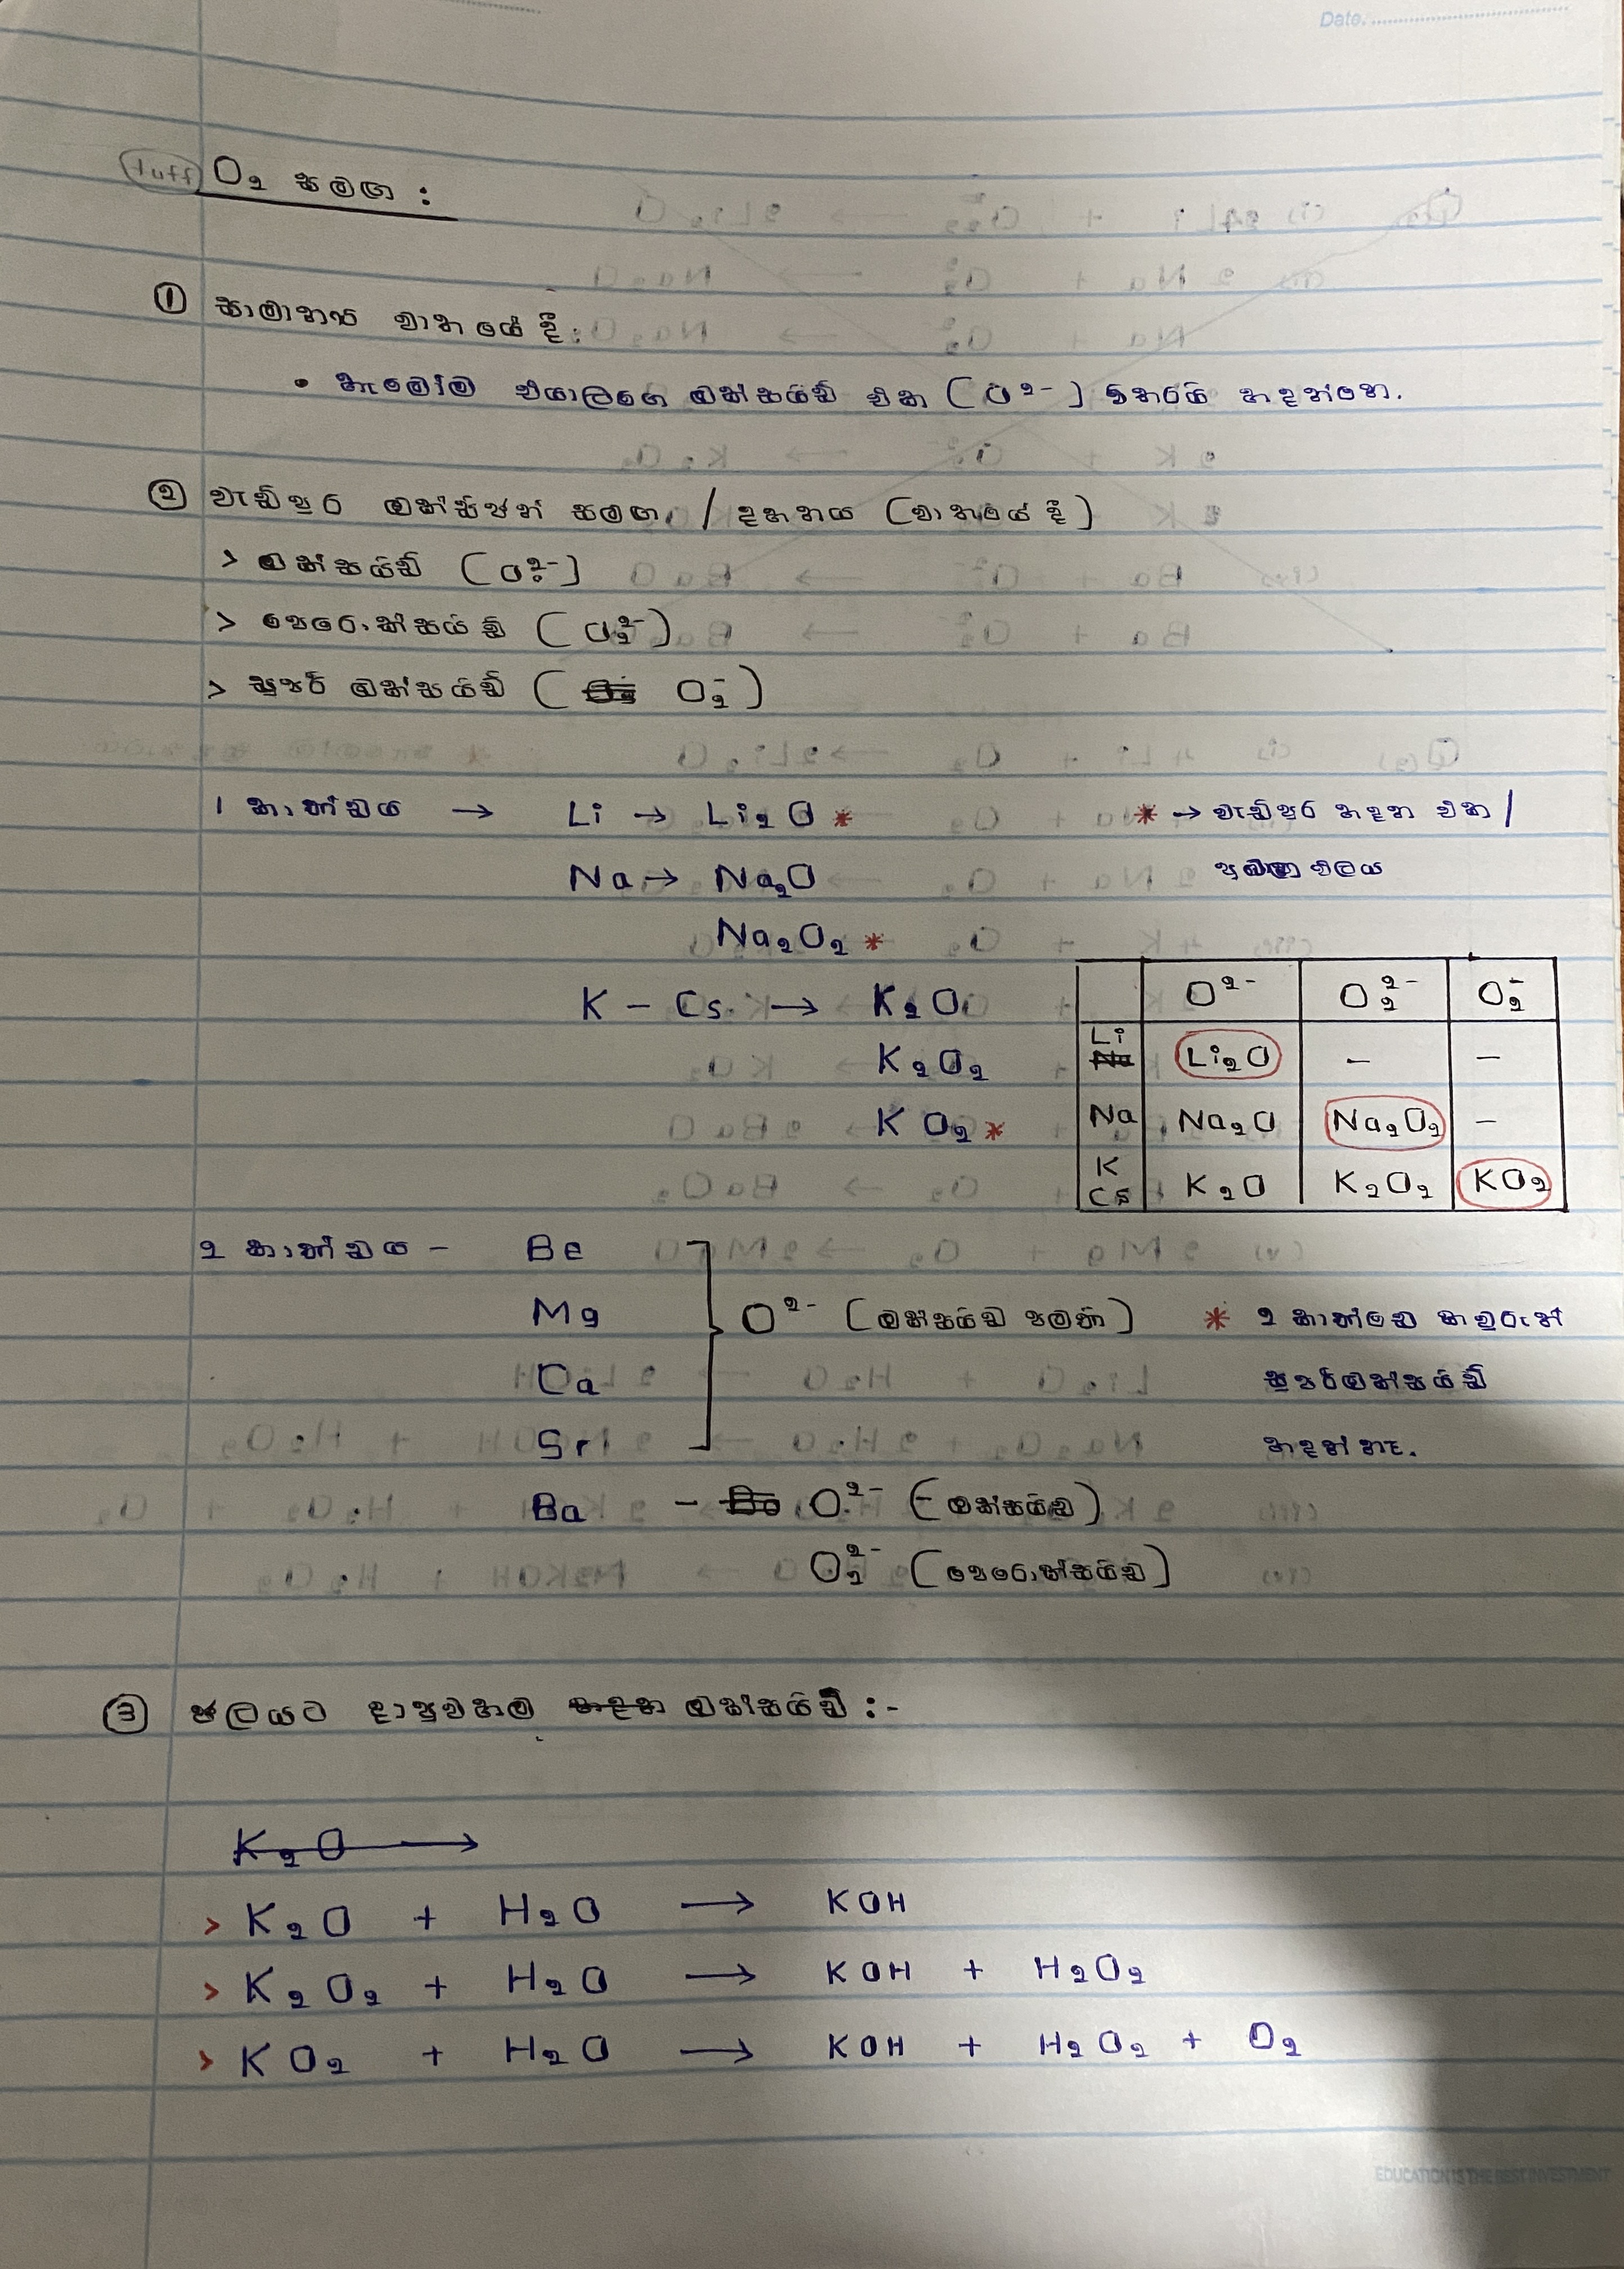 Date. ........................
tuff O₂ සමඟ :
① සාමාන්‍ය වාතයේ දී:
• හැමෝම එයාලගෙ ඔක්සයිඩ් එක (O²⁻) විතරයි හදන්නෙ.
② වැඩිපුර ඔක්සිජන් සමඟ / දහනය (වාතයේ දී)
> ඔක්සයිඩ් (O²⁻)
> පෙරොක්සයිඩ් (O₂²⁻)
> සුපර් ඔක්සයිඩ් ( O₂⁻)
1 කාණ්ඩය → Li → Li₂O * * → වැඩිපුර හදන එක /
Na → Na₂O ඵලය
Na₂O₂ *
K – Cs → K₂O
K₂O₂
KO₂ *
O²⁻ O₂²⁻ O₂⁻
Li Li₂O – –
Na Na₂O Na₂O₂ –
K Cs K₂O K₂O₂ KO₂
2 කාණ්ඩය – Be
Mg O²⁻ (ඔක්සයිඩ පමණි) * 2 කාණ්ඩෙ කවුරුත්
Ca සුපර්ඔක්සයිඩ්
Sr හදන් නෑ.
Ba – O²⁻ (ඔක්සයිඩ)
O₂²⁻ (පෙරොක්සයිඩ)
③ ජලයට දාපුවහම හදන ඔක්සයිඩ් :-
K₂O →
> K₂O + H₂O → KOH
> K₂O₂ + H₂O → KOH + H₂O₂
> KO₂ + H₂O → KOH + H₂O₂ + O₂
EDUCATION IS THE BEST INVESTMENT